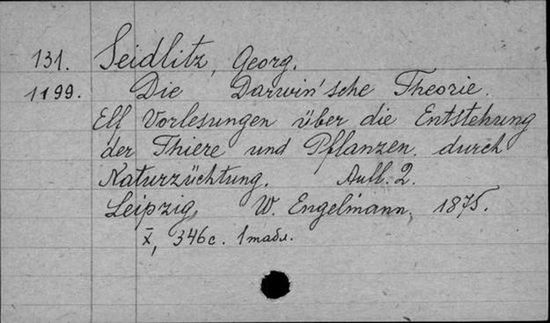 131. Seidlitz, Georg.
1199. Die Darwin'sche Theorie.
Elf Vorlesungen über die Entstehung
der Thiere und Pflanzen durch
Naturzüchtung. Aufl. 2.
Leipzig, W. Engelmann, 1875.
X, 346 с. 1 табл.